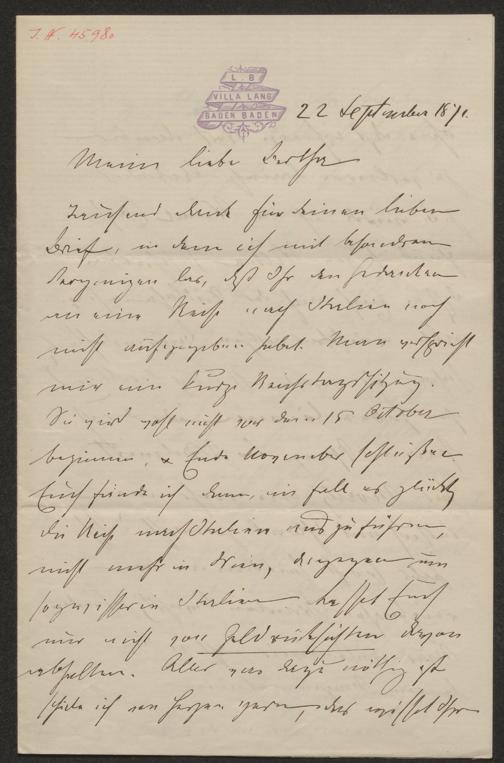 J. N. 45980
L. B
VILLA LANG
BADEN BADEN
22 September 1871.
Meine liebe Bertha
Tausend Dank für deinen lieben
Brief, in dem ich mit besonderem
Vergnügen las, daß Ihr den Gedanken
an eine Reise nach Italien noch
nicht aufgegeben habet. Man verspricht
mir eine kurze Reichstagssitzung.
Sie wird wohl nicht vor dem 15 October
beginnen, & Ende November schließen.
Euch fände ich dann, im Fall es glückt
die Reise nach Italien auszuführen,
nicht mehr in Wien, dagegen um
so gewisser in Italien. Lasset Euch
nur nicht von Geldrücksichten davon
abhalten. Alles was dazu nöthig ist
schicke ich von Herzen gern, das wisset Ihr